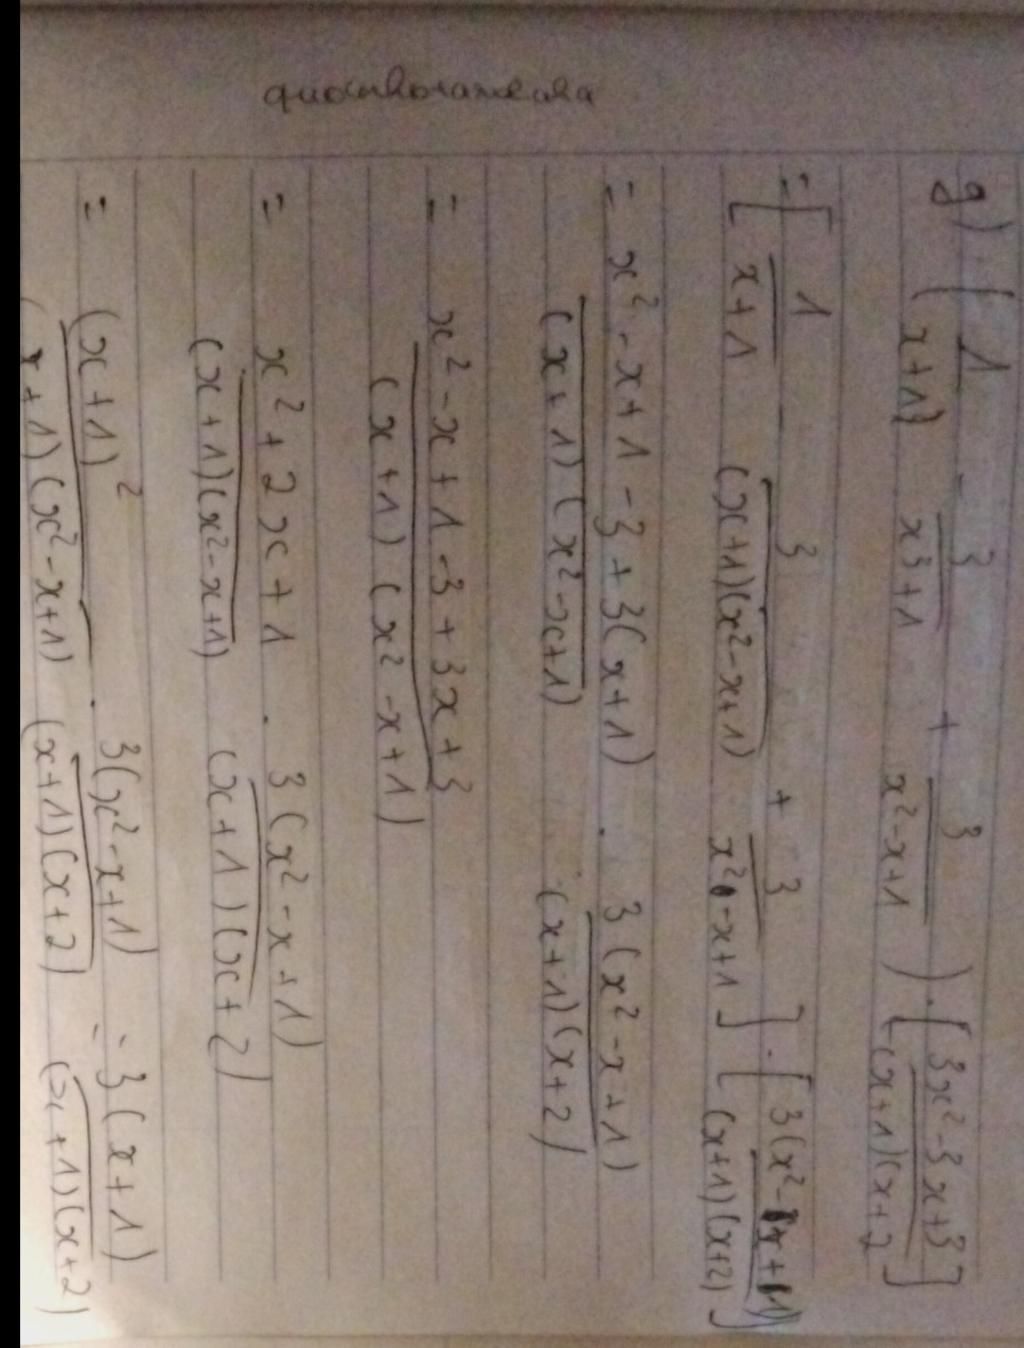 g) ( 1/(x+1) - 3/(x³+1) + 3/(x²-x+1) ) · [ (3x²-3x+3)/((x+1)(x+2)) ]
= [ 1/(x+1) 3/((x+1)(x²-x+1)) + 3/(x²-x+1) ] · [ 3(x²-x+1)/((x+1)(x+2)) ]
= (x²-x+1-3+3(x+1))/((x+1)(x²-x+1)) · 3(x²-x+1)/((x+1)(x+2))
= (x²-x+1-3+3x+3)/((x+1)(x²-x+1))
= (x²+2x+1)/((x+1)(x²-x+1)) · 3(x²-x+1)/((x+1)(x+2))
= (x+1)²/((x+1)(x²-x+1)) · 3(x²-x+1)/((x+1)(x+2)) = 3(x+1)/((x+1)(x+2))